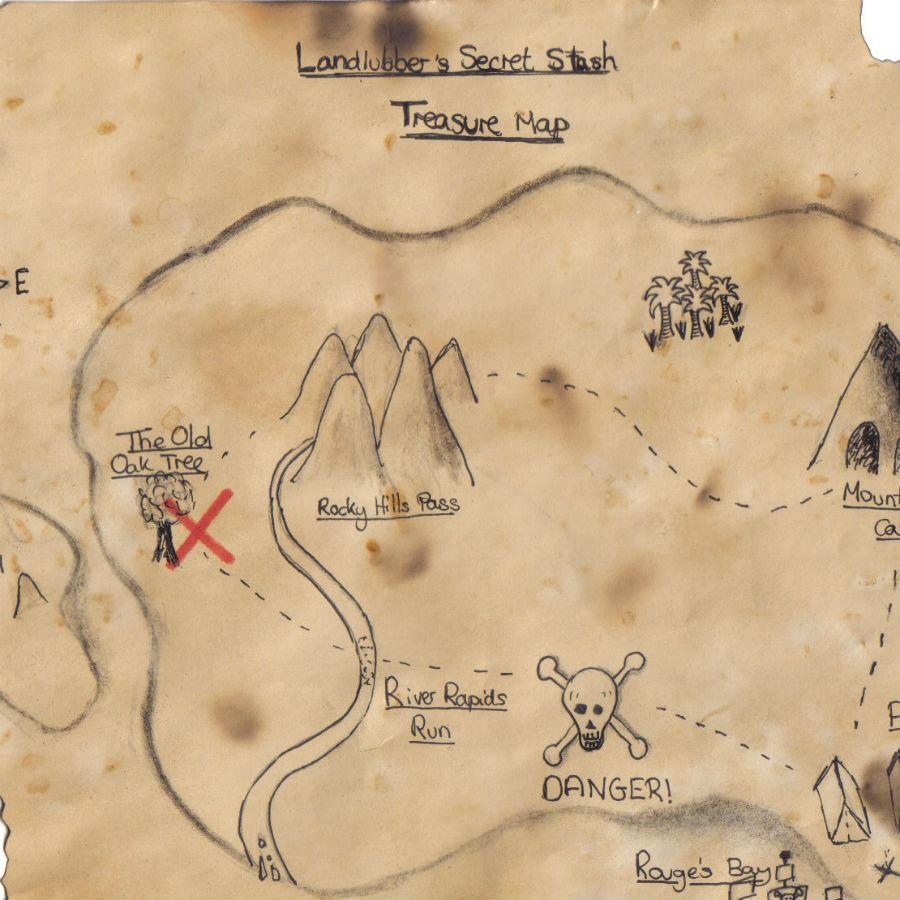 Landlubber's Secret Stash
Treasure Map
E
The Old
Oak Tree
Rocky Hills Pass
River Rapids
Run
DANGER!
Rouge's Bay